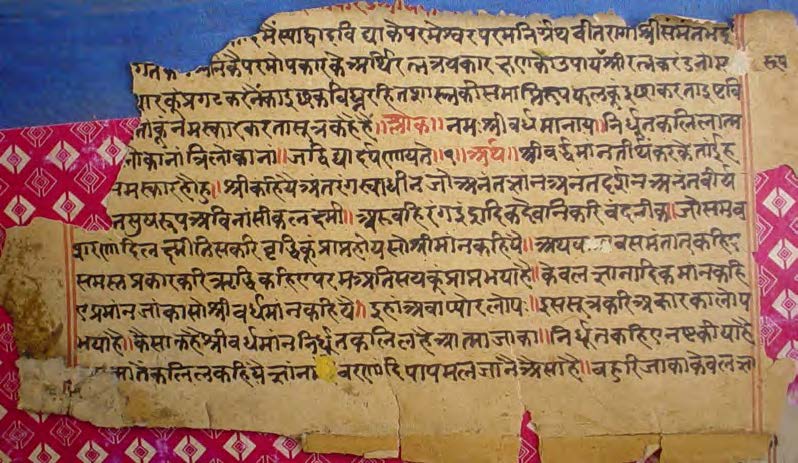 स्याद्वादविद्याकैपरमेश्वरपरमनिर्ग्रंथवीतरागश्रीसमंतभद्र
निकैपरमोपकारकैअर्थिरत्नत्रयकारक्षणकैउपायश्रीरत्नकरंडनाम रूप
कूंप्रगटकरनैकाइछकविघ्नरहितशास्त्रकीसमाप्तिरूपफलकूंइछाकरताइष्टवि
ताकूंनमस्कारकरतासूत्रकहैहै॥श्लोक॥नमःश्रीवर्धमानाय॥निर्धूतकलिलात्म
लोकानांत्रिलोकाना॥जद्विद्यादर्पणायते॥१॥अर्थ॥श्रीवर्द्धमानतीर्थंकरकेतांईह
नमस्कारहोहु॥श्रीकहियैअंतरंगस्वाधीनजोअनंतज्ञानअनंतदर्शनअनंतवीर्य
नसुषरूपअविनांसीकलक्ष्मी॥अरवहिरंगइंद्रादिकदेवानिकरिवंदनीक॥जौसमव
शरणादिलक्ष्मीतिसकरिवृद्धिकूंप्राप्तहोयसोश्रीमांनकहियै॥अथव समंतातकहिए
समस्तप्रकारकरिऋद्धिकहिएपरमअतिसयकूंप्राप्तभयाहै॥केवलज्ञानादिकमांनकहि
एप्रमांनजांकासोश्रीवर्धमांनकहियै॥इहांअवाप्योरलोपः॥इससूत्रकरिअकारकालोप
भयाहै॥कैसाकहैश्रीवर्धमांननिर्धूतकलिलहैआत्माजाका॥निर्धूतकहिएनष्टकीयाहै
आत्मातकलिलकहियैज्ञाना वरणादिपापमलजानैअैसाहै॥बहुरिजाकाकेवलज्ञा